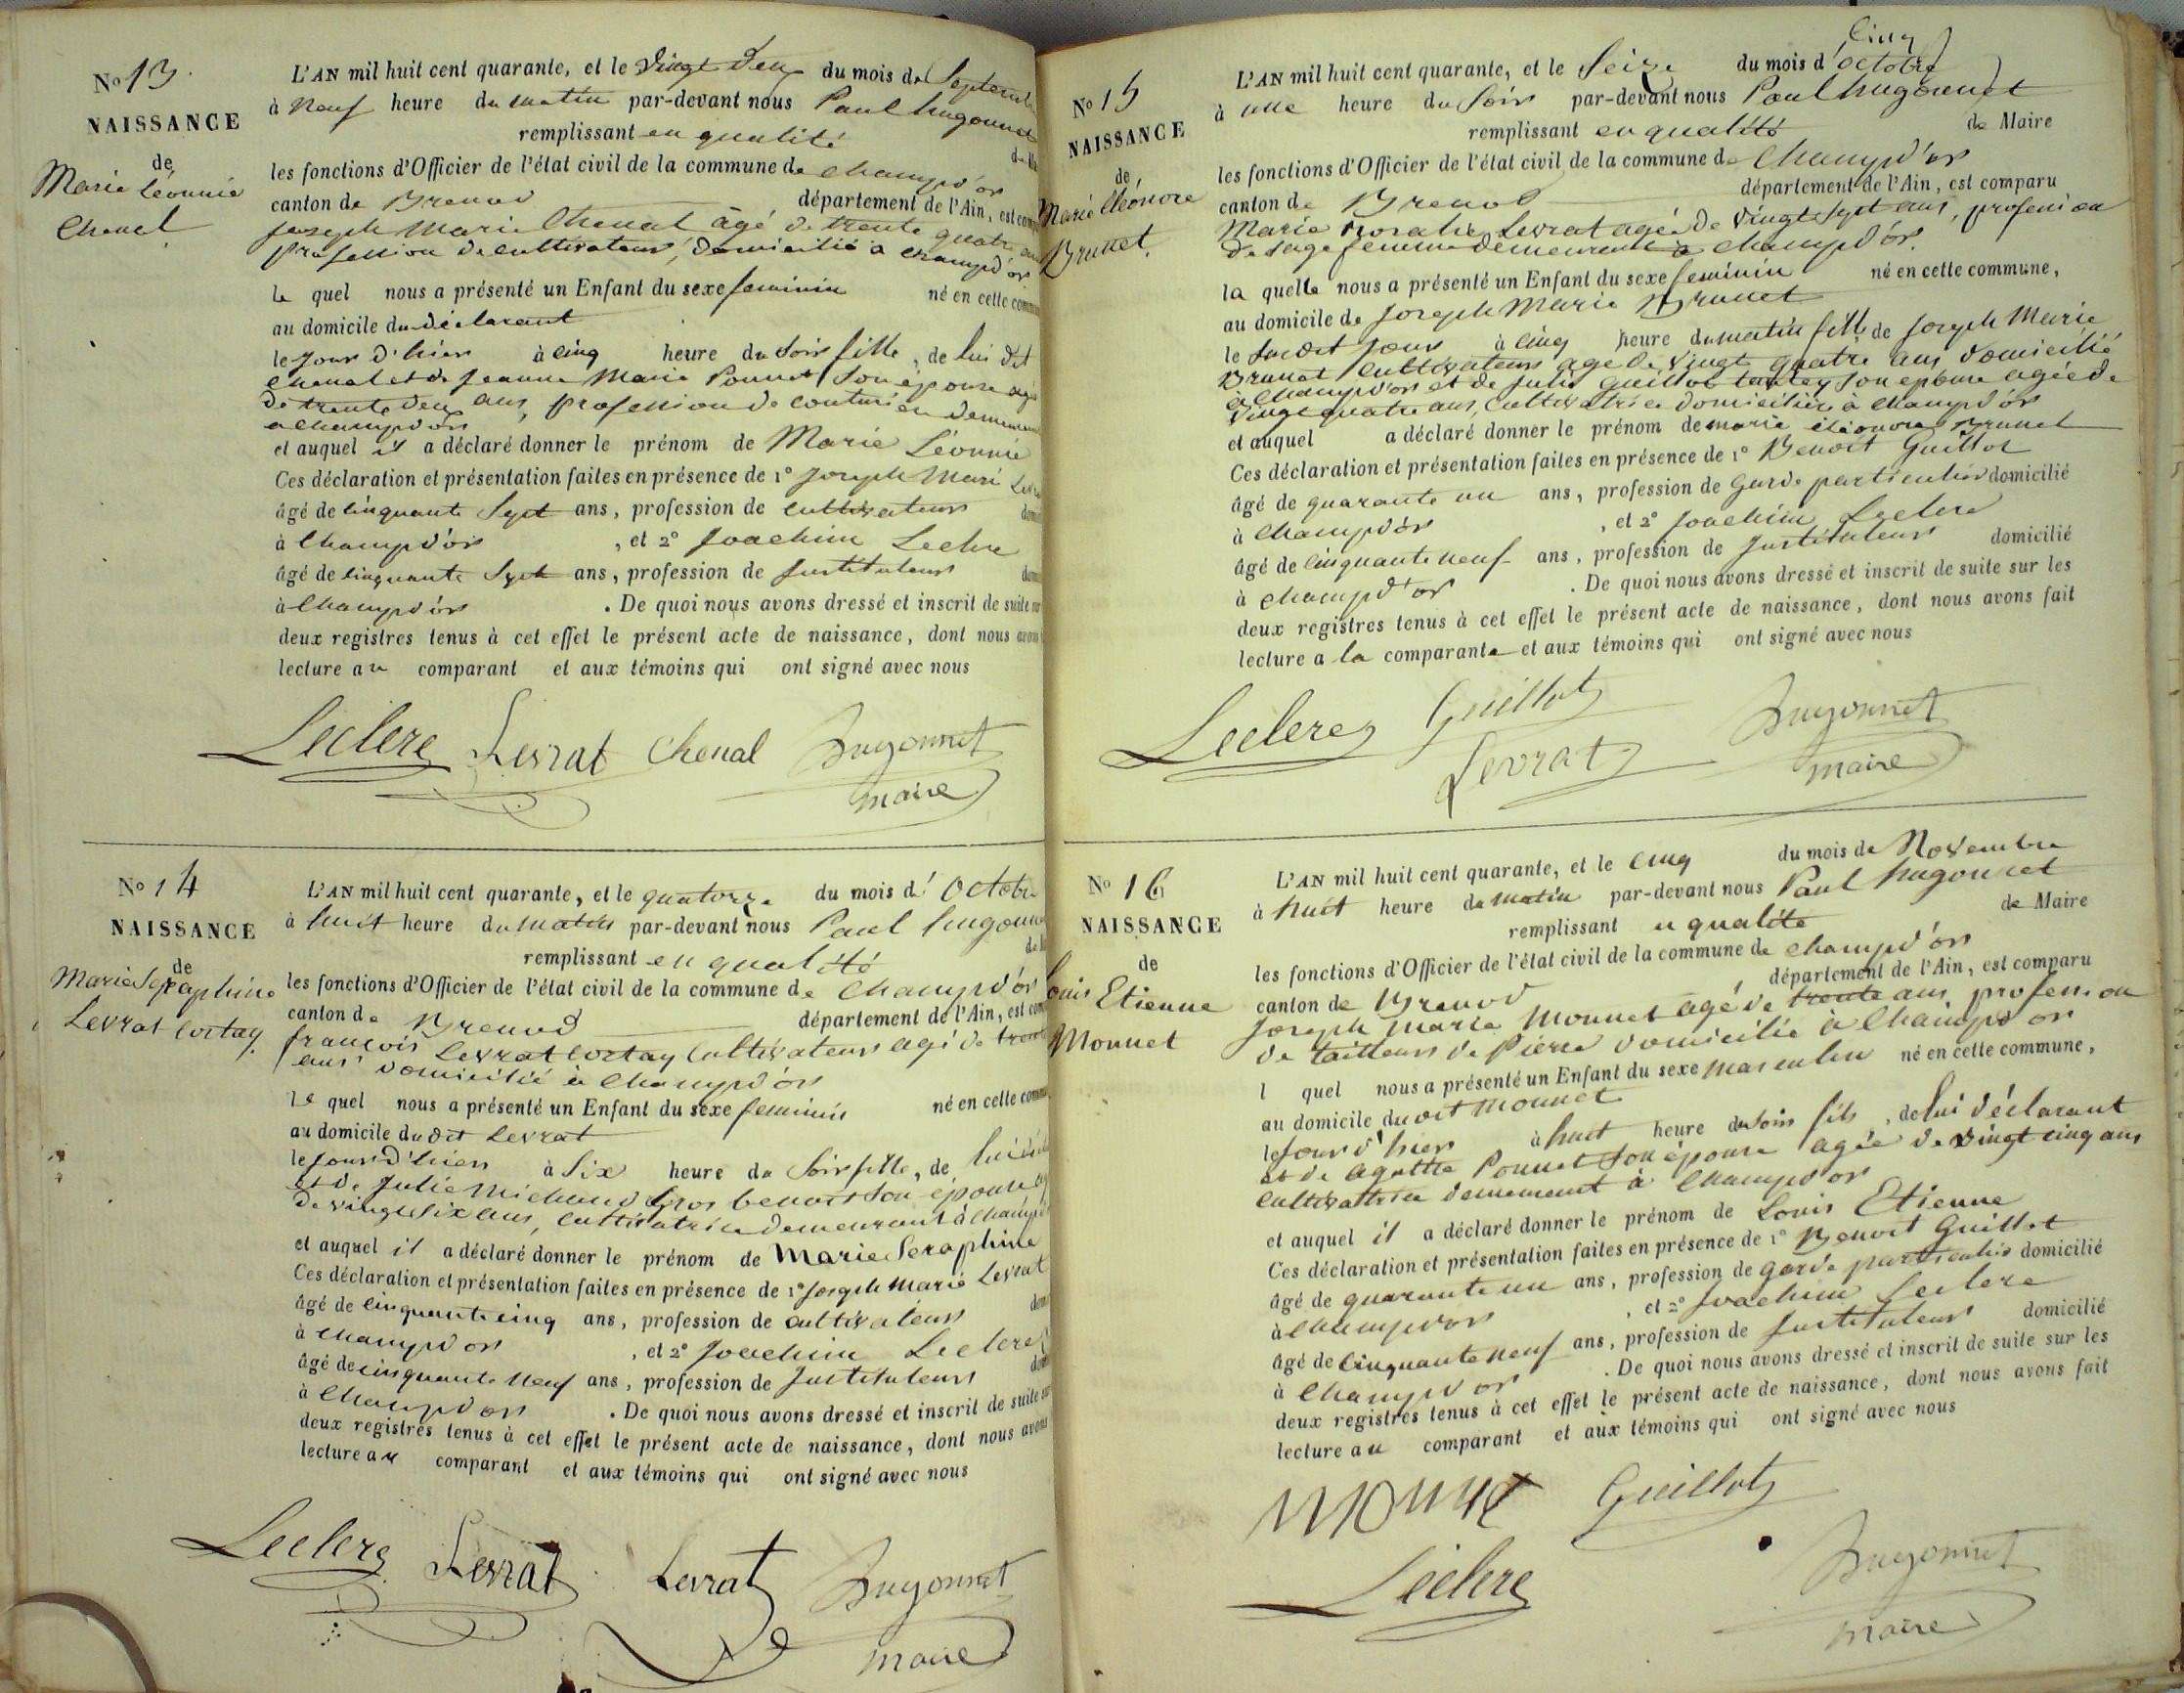 No 13
NAISSANCE
de
Marie Léonnie
Chenal
L'AN mil huit cent quarante, et le vingt deux du mois de Septemb
à neuf heure du matin par-devant nous Paul hugonnet
remplissant en qualité
les fonctions d'Officier de l'état civil de la commune de champd'or
canton de Brenod département de l'Ain, est com
joseph Marie Chenal âgé de trente quatre ans
profession de cultivateur, domicilié à champd'or
le quel nous a présenté un Enfant du sexe feminin né en cette comm
au domicile du déclarant
le jour d'hier à cinq heure du soir fille, de lui dit
chenal et de jeanne Marie Ponnet son épouse agé
de trente deux ans, profession de couturière demeurant
a champd'or
et auquel il a déclaré donner le prénom de Marie Léonnie
Ces déclaration et présentation faites en présence de 1° joseph Mari Levra
âgé de cinquante Sept ans, profession de cultivateur domi
à Champd'or , et 2° Joachim Leclere
âgé de cinquante Sept ans, profession de instituteur dom
à Champd'or . De quoi nous avons dressé et inscrit de suite sur
deux registres tenus à cet effet le présent acte de naissance, dont nous avons
lecture au comparant et aux témoins qui ont signé avec nous
Leclere Levrat Chenal hugonnet
maire
No 14
NAISSANCE
de
Marie Séraphine
Levrat Cortay
L'AN mil huit cent quarante, et le quatorze du mois d' Octobre
à huit heure du matin par-devant nous Paul hugonn
remplissant en qualité
les fonctions d'Officier de l'état civil de la commune de Champd'or
canton de Brenod département de l'Ain, est com
françois Levrat Cortay Cultivateur agé de trente
ans domicilié à Champd'or
le quel nous a présenté un Enfant du sexe feminin né en cette comm
au domicile du dit Levrat
le jour d'hier à Six heure du Soir fille, de lui
et de Julie Michaud Gros benoit son épouse
de vingt six ans, cultivatrice demeurant à champ
et auquel il a déclaré donner le prénom de Marie Seraphine
Ces déclaration et présentation faites en présence de 1° joseph Marie Levrat
âgé de cinquante cinq ans, profession de cultivateur dom
à champd'or , et 2° Joachim Leclere
âgé de cinquante neuf ans, profession de Instituteur dom
à Champd'or . De quoi nous avons dressé et inscrit de suite sur
deux registres tenus à cet effet le présent acte de naissance, dont nous avons
lecture au comparant et aux témoins qui ont signé avec nous
Leclere Levrat Levrat hugonnet
maire
No 15
NAISSANCE
de
Marie Eléonore
Brunet
L'AN mil huit cent quarante, et le Seize du mois d'octobre
à une heure du Soir par-devant nous Paul hugonnet
remplissant en qualité de Maire
les fonctions d'Officier de l'état civil de la commune de Champd'or
canton de Brenod département de l'Ain, est comparu
Marie rosalie Levrat agée de vingt sept ans, profession
de sage femme demeurant à Champd'or.
la quelle nous a présenté un Enfant du sexe feminin né en cette commune,
au domicile de joseph Marie Brunet
le susdit jour à cinq heure du matin fille de joseph Marie
Brunet Cultivateur age de vingt quatre ans domicilié
à Champd'or et de Julie Guillot tantey son epouse agée de
vingt quatre ans, Cultivatrice domiciliée à champd'or
et auquel a déclaré donner le prénom de marie éléonore Brunet
Ces déclaration et présentation faites en présence de 1° Benoit Guillot
âgé de quarante un ans, profession de Garde particulier domicilié
à Champd'or , et 2° Joachim Leclere
âgé de cinquante neuf ans, profession de Instituteur domicilié
à champd'or . De quoi nous avons dressé et inscrit de suite sur les
deux registres tenus à cet effet le présent acte de naissance, dont nous avons fait
lecture a la comparante et aux témoins qui ont signé avec nous
Leclere Guillot hugonnet
Levrat maire
No 16
NAISSANCE
de
Louis Etienne
Monnet
L'AN mil huit cent quarante, et le cinq du mois de Novembre
à huit heure du matin par-devant nous Paul hugonnet
remplissant en qualité de Maire
les fonctions d'Officier de l'état civil de la commune de champd'or
canton de Brenod département de l'Ain, est comparu
joseph marie Monnet agé de trente ans profession
de tailleur de Pierre domicilié à Champd'or
l quel nous a présenté un Enfant du sexe masculin né en cette commune,
au domicile du dit Monnet
le jour d'hier à huit heure du soir fils, de lui déclarant
et de Agathe Ponnet son épouse agée de vingt cinq ans
cultivatrice demeurant à Champd'or
et auquel il a déclaré donner le prénom de Louis Etienne
Ces déclaration et présentation faites en présence de 1° Benoit Guillot
âgé de quarante un ans, profession de garde particulier domicilié
à Champd'or , et 2° Joachim Leclere
âgé de cinquante neuf ans, profession de Instituteur domicilié
à Champd'or . De quoi nous avons dressé et inscrit de suite sur les
deux registres tenus à cet effet le présent acte de naissance, dont nous avons fait
lecture au comparant et aux témoins qui ont signé avec nous
Monnet Guillot
Leclere hugonnet
maire